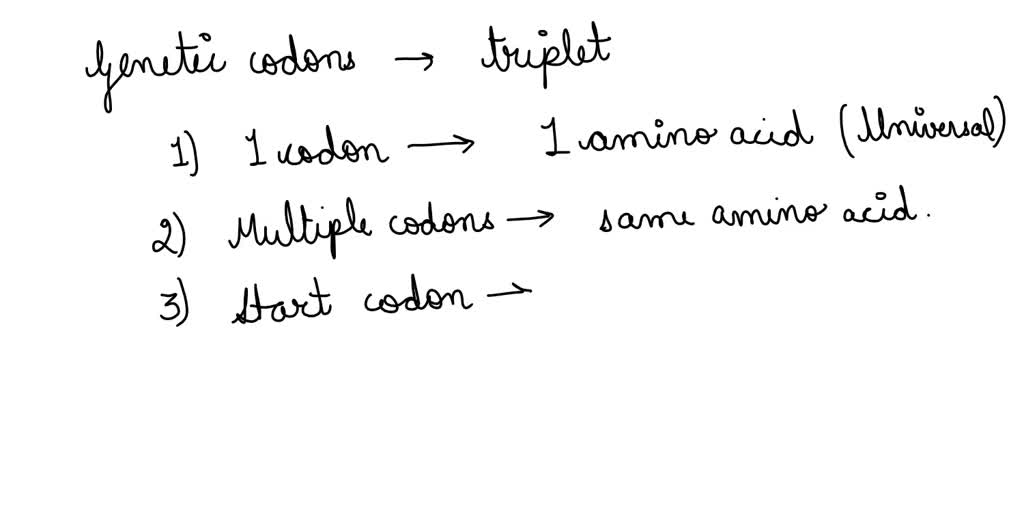 Genetic codons → triplet
1) 1 codon → 1 amino acid (Universal)
2) Multiple codons → same amino acid.
3) Start codon →